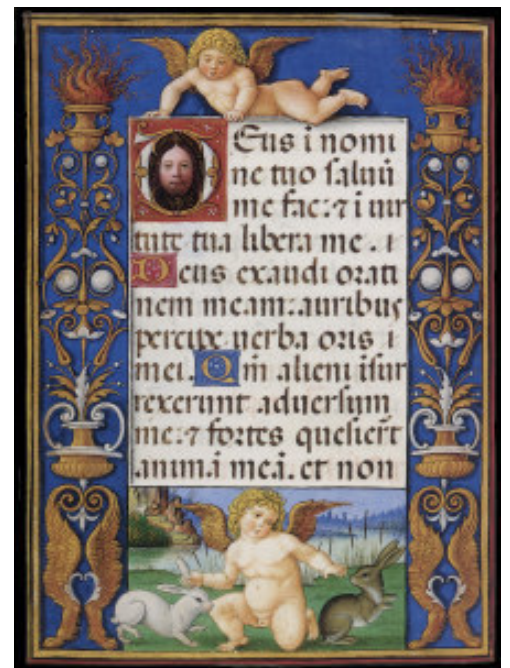 Eus i nomi
ne tuo saluū
me fac: ⁊ i uir
tute tua libera me. i
Deus exaudi orati
nem meam: auribus
percipe uerba oris i
mei. Qm̄ alieni isur
rexerunt aduersum
me: ⁊ fortes quesiert̄
animā meā. et non